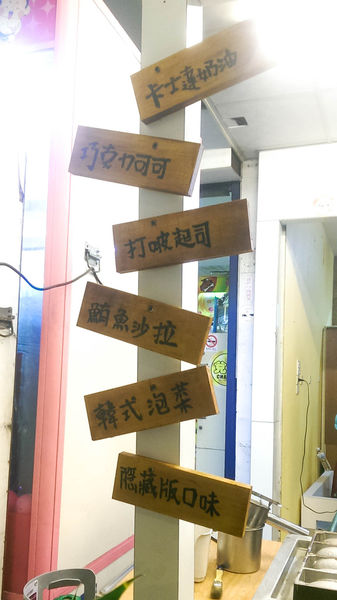 卡士達奶油
巧克力可可
打啵起司
鮪魚沙拉
韓式泡菜
隱藏版口味